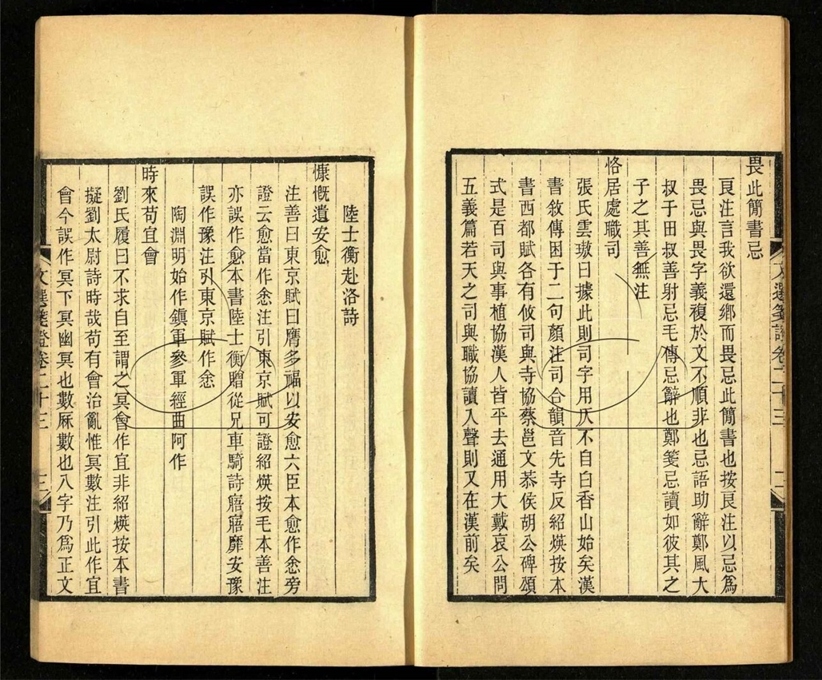 畏此簡書忌
良注言我欲還鄉而畏忌此簡書也按良注以忌爲
畏忌與畏字義複於文不順非也忌語助辭鄭風大
叔于田叔善射忌毛傳忌辭也鄭箋忌讀如彼其之
子之其善無注
恪居處職司
張氏雲璈曰據此則司字用仄不自白香山始矣漢
書敘傳困于二句顏注司合韻音先寺反紹煐按本
書西都賦各有攸司與寺協蔡邕文恭侯胡公碑頌
式是百司與事植協漢人皆平去通用大戴哀公問
五義篇若天之司與職協讀入聲則又在漢前矣
文選箋證卷二十三
二
陸士衡赴洛詩
慷慨遺安愈
注善曰東京賦曰膺多福以安愈六臣本愈作悆旁
證云愈當作悆注引東京賦可證紹煐按毛本善注
亦誤作愈本書陸士衡贈從兄車騎詩寤寐靡安豫
誤作豫注引東京賦作悆
陶淵明始作鎮軍參軍經曲阿作
時來苟宜會
劉氏履曰不求自至謂之冥會作宜非紹煐按本書
擬劉太尉詩時哉苟有會治亂惟冥數注引此作宜
會今誤作冥下冥幽冥也數厤數也八字乃爲正文
文選箋證卷二十三
三